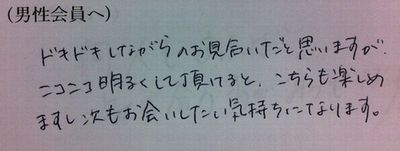 (男性会員へ)
ドキドキしながらのお見合いだと思いますが、
ニコニコ明るくして頂けると、こちらも楽しめ
ますし次もお会いしたい気持ちになります。